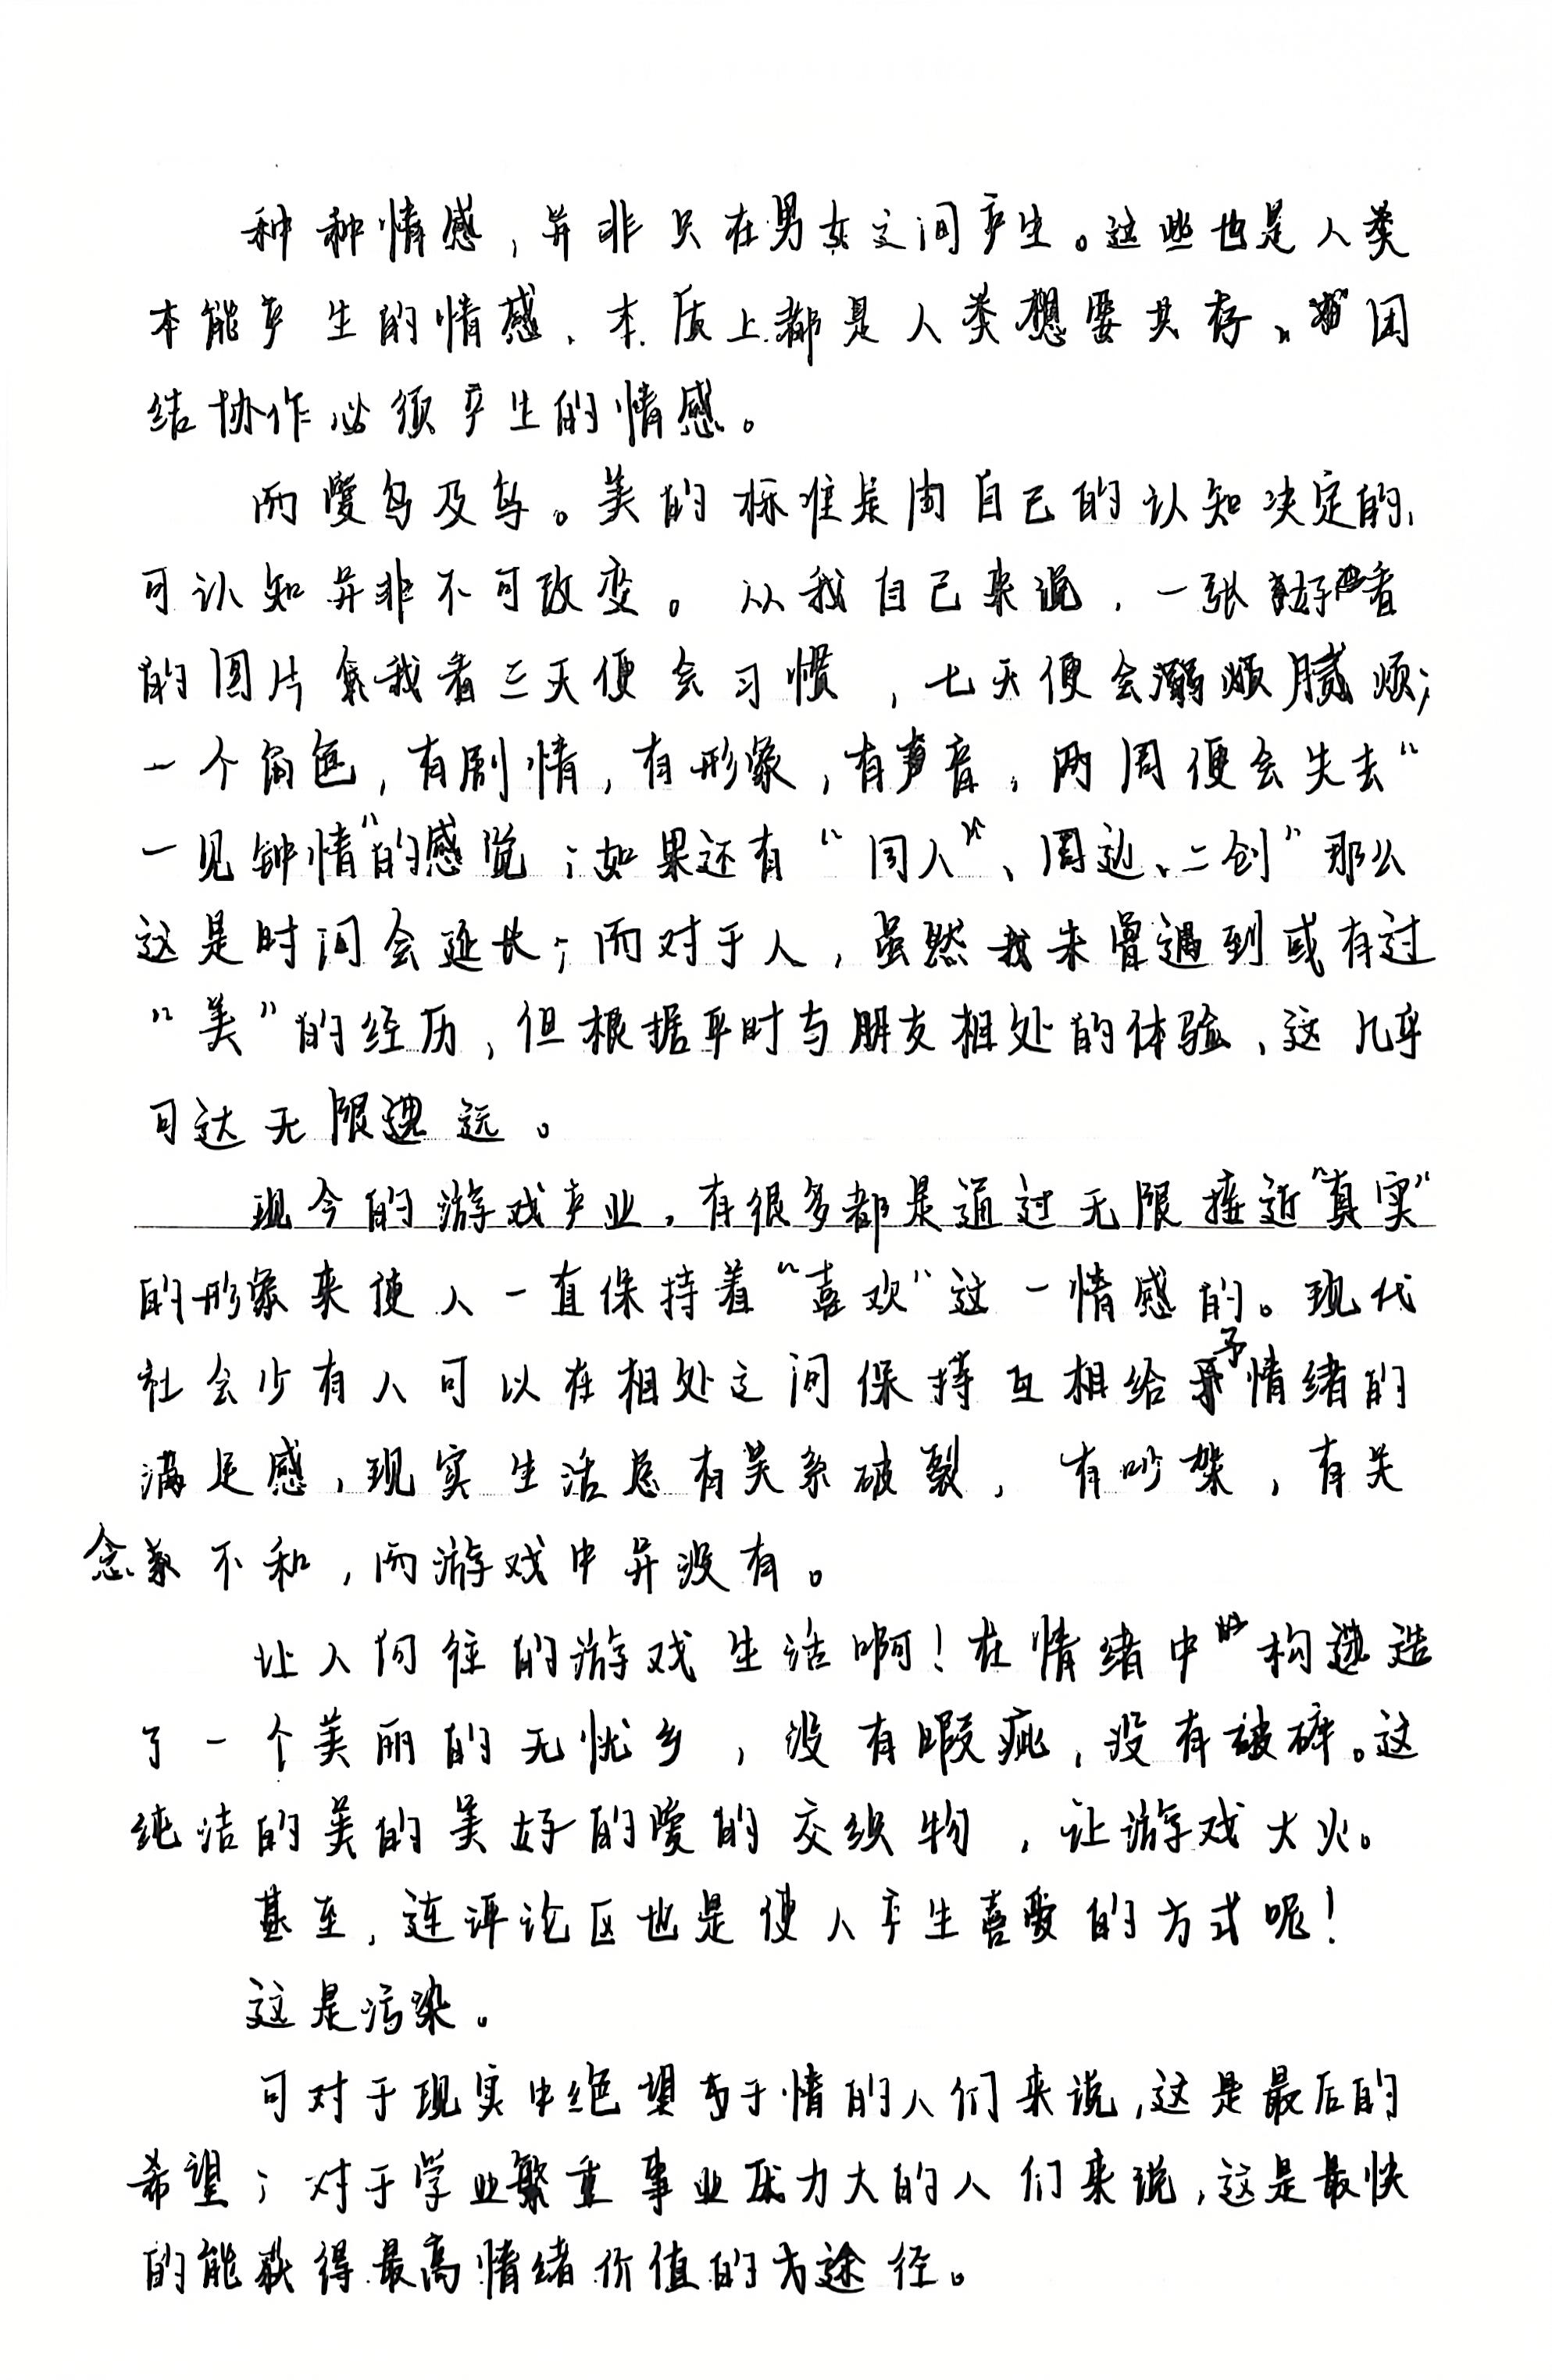 种种情感，并非只在男女之间产生。这些也是人类
本能产生的情感、本质上都是人类想要共存、团
结协作必须产生的情感。
而爱乌及乌。美的标准是由自己的认知决定的，
可认知并非不可改变。从我自己来说，一张好看
的图片我看三天便会习惯，七天便会腻烦；
一个角色，有剧情，有形象，有声音，两周便会失去“
一见钟情”的感觉；如果还有“同人”、周边、二创”那么
这是时间会延长；而对于人，虽然我未曾遇到或有过
“美”的经历，但根据平时与朋友相处的体验，这几乎
可达无限遥远。
现今的游戏产业，有很多都是通过无限接近“真实”
的形象来使人一直保持着“喜欢”这一情感的。现代
社会少有人可以在相处之间保持互相给予情绪的
满足感，现实生活总有关系破裂，有吵架，有关
念不和，而游戏中并没有。
让人向往的游戏生活啊！在情绪中构造
了一个美丽的无忧乡，没有暇疵，没有破碎。这
纯洁的美的美好的爱的交织物，让游戏大火。
甚至，连评论区也是使人产生喜爱的方式呢！
这是污染。
可对于现实中绝望于情的人们来说，这是最后的
希望；对于学业繁重事业压力大的人们来说，这是最快
的能获得最高情绪价值的途径。